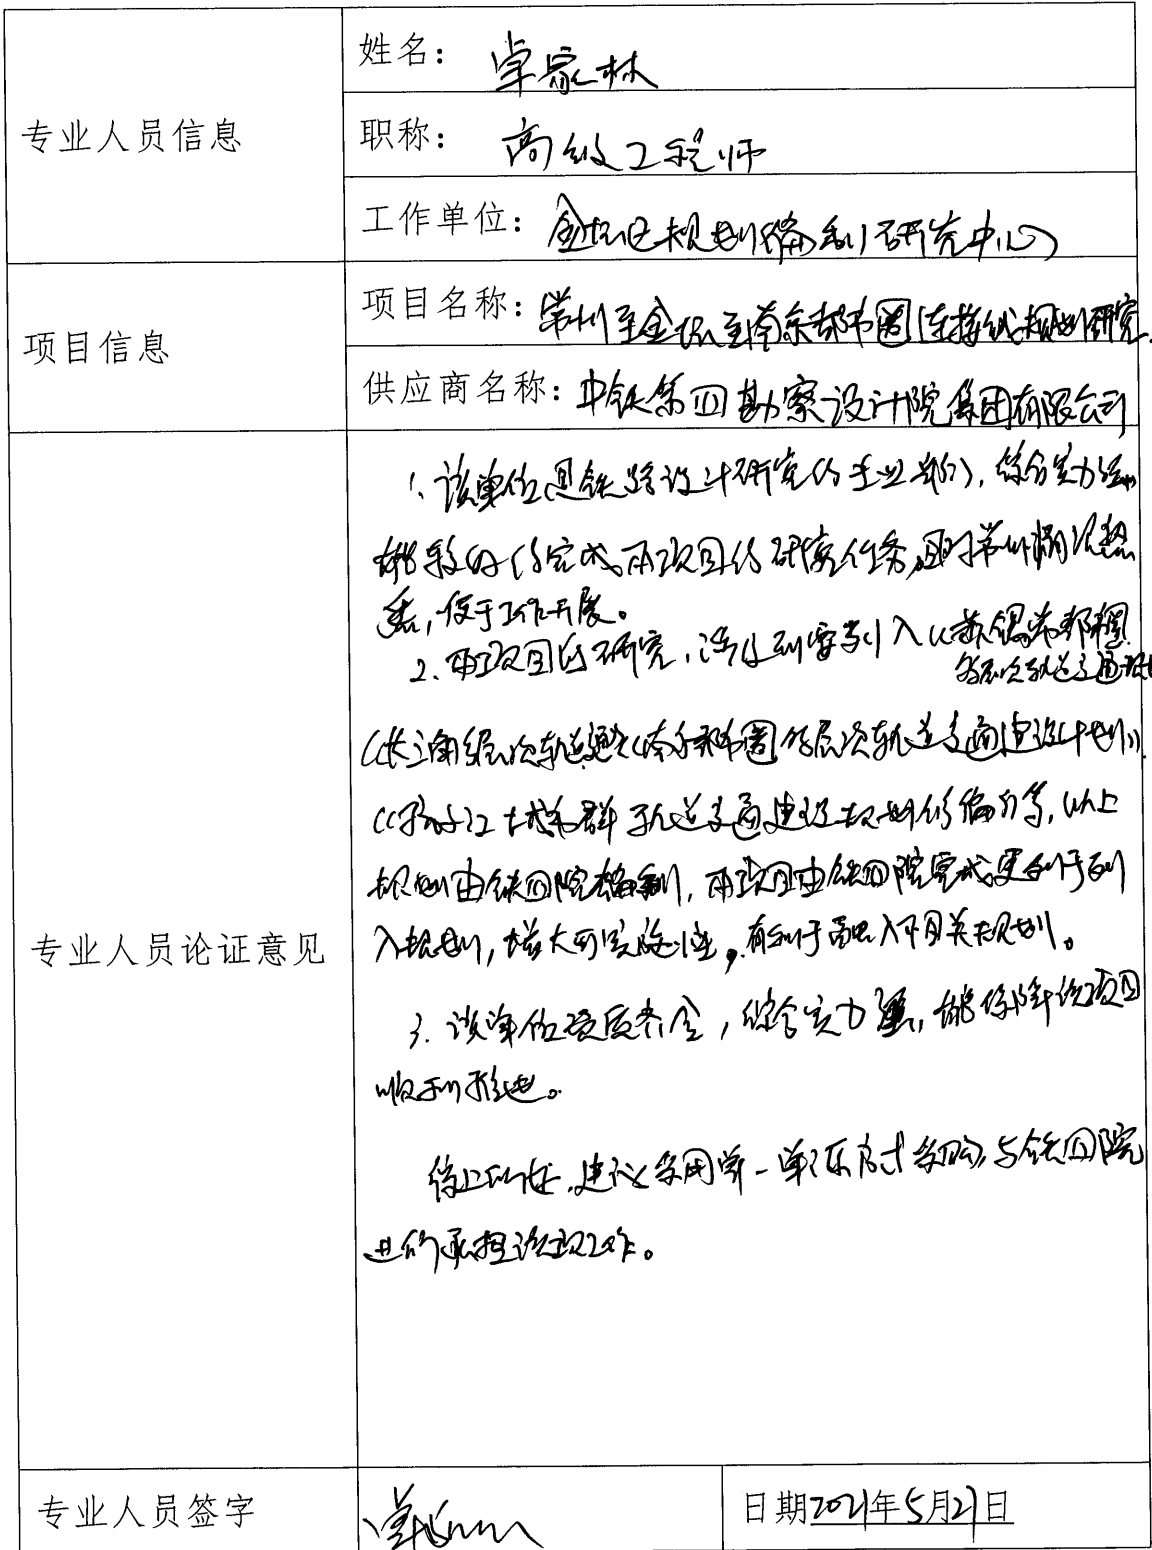 专业人员信息
姓名：卓家林
职称：高级工程师
工作单位：金坛区规划编制研究中心
项目信息
项目名称：常州至金坛至南京都市圈连接线规划研究
供应商名称：中铁第四勘察设计院集团有限公司
专业人员论证意见
1、该单位是铁路设计研究的专业部门，综合实力强，
能较好的完成本项目的研究任务，且对常州情况熟
悉，便于工作开展。
2、本项目的研究，涉及到要列入《苏锡常都市圈
多层次轨道交通规划
《长三角多层次轨道交通》《南京都市圈多层次轨道交通建设计划》
城市群轨道交通建设规划修编》等，以上
规划由铁四院编制，本项目由铁四院完成更有利于列
入规划，增大可实施性，有利于融入相关规划。
3. 该单位资质齐全，综合实力强，能保障该项目
顺利推进。
综上所述，建议采用单一单源方式采购，与铁四院
承担该项工作。
专业人员签字
日期2021年5月21日